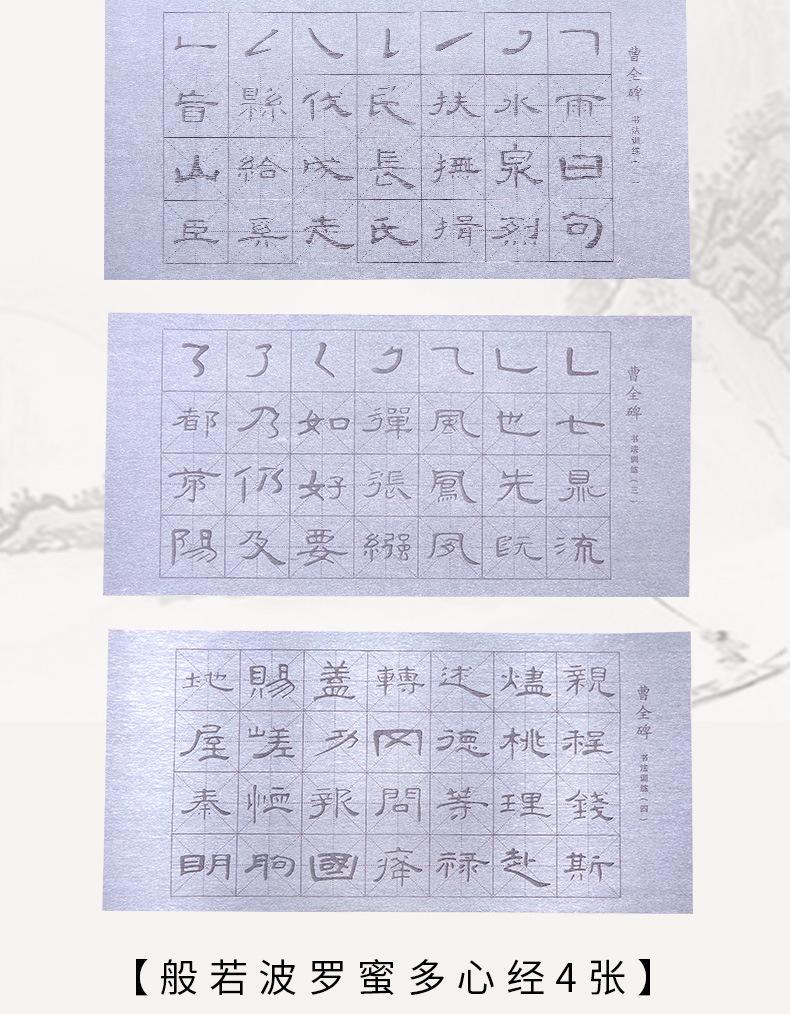 曹全碑
书法训练
雨曰句
水泉烈
扶撫揖
民長氏
伐成走
縣給
山臣
曹全碑
书法训练（三）
七流
也先既
風鳳夙
彈張
如好要
乃仍及
都第陽
曹全碑
书法训练（四
親程錢斯
燼桃理赴
述德等禄
轉网問
蓋功報國
賜嵯恤朐
地屋秦明
【般若波罗蜜多心经4张】